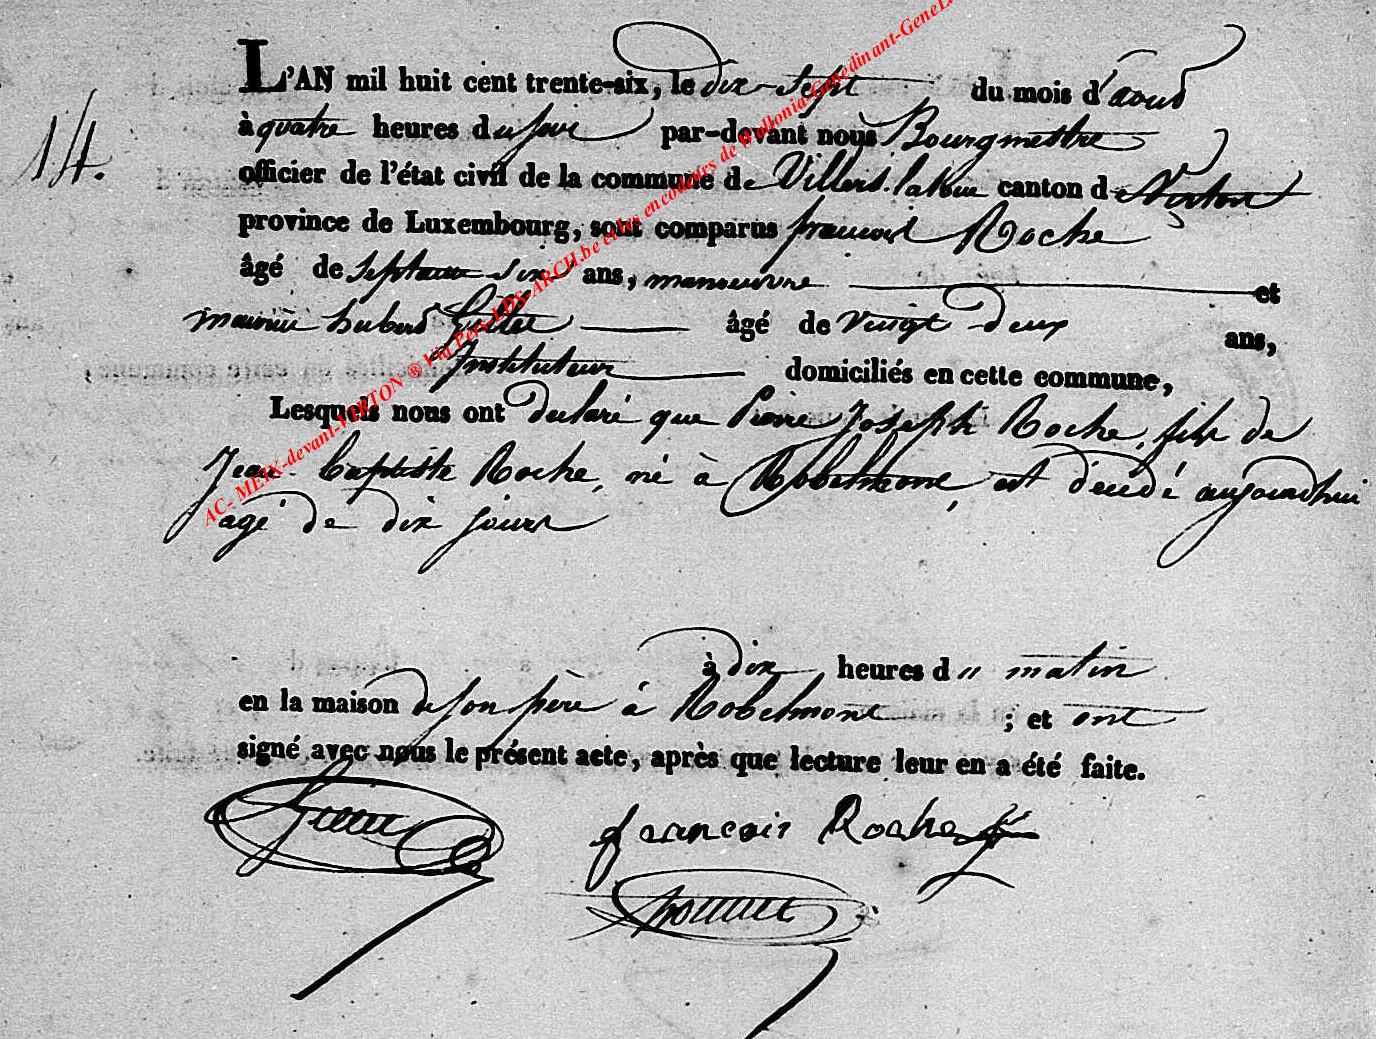 14.
L'AN mil huit cent trente-six, le dix-sept du mois d'aout
à quatre heures du soir par-devant nous Bourgmestre
officier de l'état civil de la commune de Villers-la-loue canton de Virton
province de Luxembourg, sont comparus francois Roche
âgé de ans, manoeuvre et
hubert âgé de vingt deux ans,
Instituteur domiciliés en cette commune,
Lesquels nous ont déclaré que Pierre Joseph Roche, fils de
Jean Baptiste Roche, né à Robelmont, est décédé aujourdhui
agé de dix jours
à dix heures du matin
en la maison de son père à Robelmont ; et ont
signé avec nous le présent acte, après que lecture leur en a été faite.
francois Roche
AC- MEIX-devant-VIRTON ® Via Pers LDS- ARCH.be et les encodeurs de Wallonia-Genedinant-GeneL